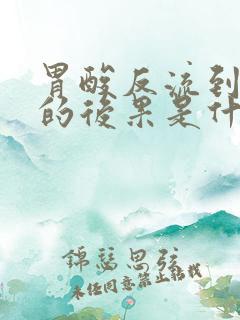 胃酸反流到
的後果是什
錦瑟思弦
未任同意禁止轉載